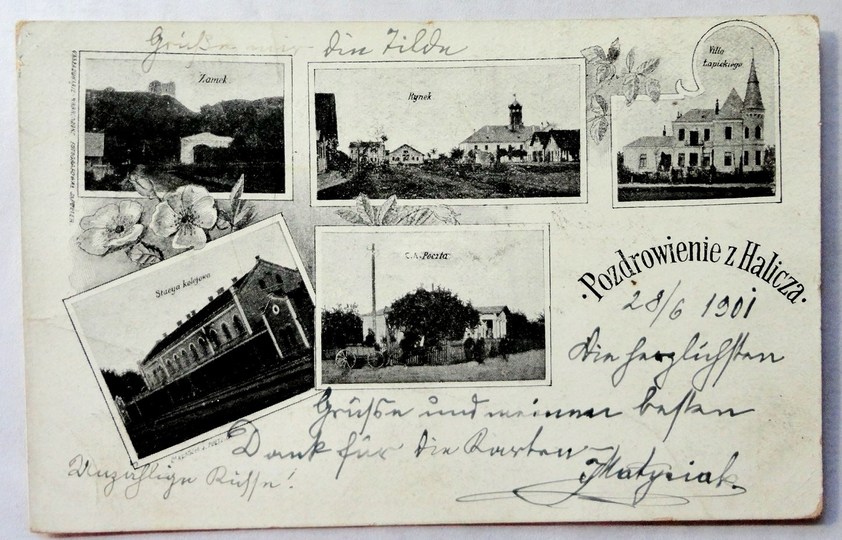 Grüße mir die Tilda
Zamek
Rynek
Villa
Łapickiego
Stacya kolejowa
C.k. Poczta
Pozdrowienie z Halicza.
28/6 1901
Die herzlichsten
Grüsse und meinen besten
Dank für die Karten
Unzählige Küsse!